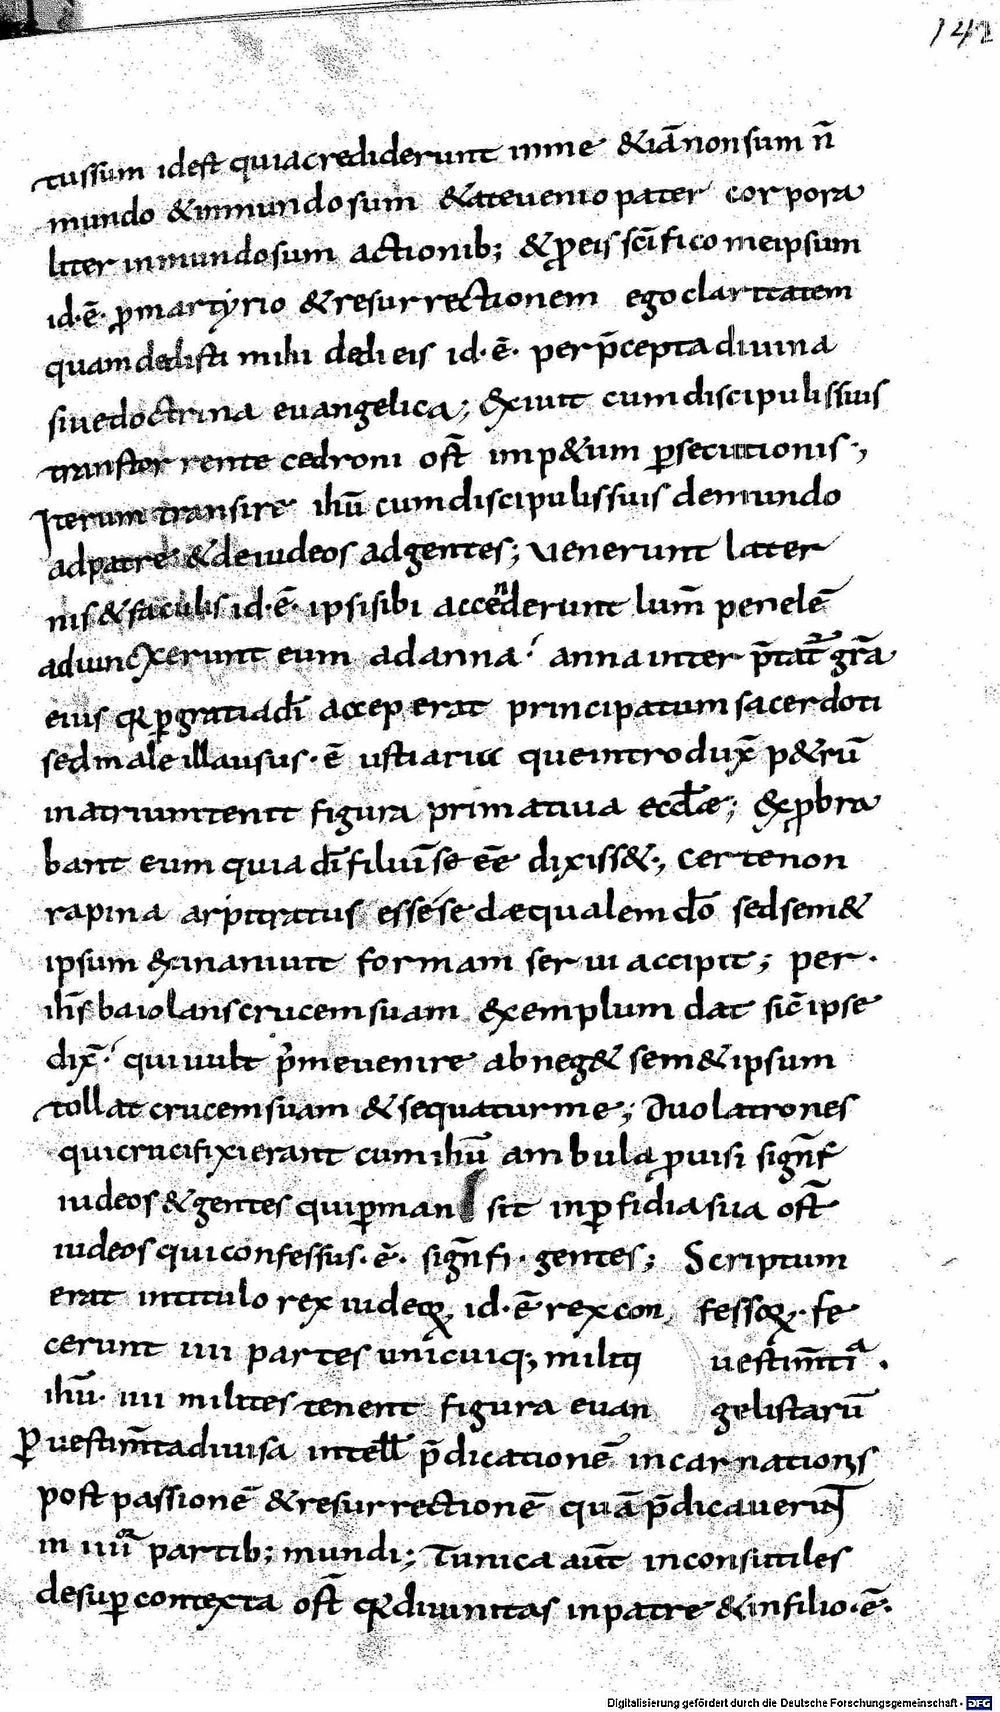 142
tussum idest quia crediderunt inme & iā non sum n̄
mundo & inmundo sum & ate uenio pater corpora
liter inmundo sum actionib; & ꝓ eis scīfico meipsum
id·ē· ꝓ martyrio & resurrectionem ego claritatem
quam dedisti mihi dedi eis id·ē· per p̄cepta diuina
siue doctrina euangelica; Exiuit cum discipulis suis
trans torrente cedroni ost̄ imp&um ꝑsecutionis·,
Iterum transire ihū cum discipulis suis demundo
adpatrē & de iudeos ad gentes; uenerunt later
nis & faculis id·ē· ipsi sibi accenderunt lum̄ penelē
adiunxerunt eum ad anna· anna inter p̄tat̄ gr̄a
eius qꝛ ꝑ gratia dī acceperat principatum sacerdoti
sed male illam usus·ē ustiaria que introdux̄ p&rū
in atrium tenit figura primatiua eccl̄æ; Exꝓbra
bant eum quia dī filiū se eē dixiss&·, certe non
rapina arpitratus esse se dæqualem dō sed sem&
ipsum exinaniuit formam serui accipit; per·
ihs̄ baiolans crucem suam exemplum dat sic̄ ipse
dix̄· qui uult p̄ me uenire abneg& sem& ipsum
tollat crucem suam & sequatur me; Duo latrones
qui crucifixi erant cum ihū ambula ꝓuisi sign̄f
iudeos & gentes qui ꝑman sit inꝑfidia sua ost̄
iudeos qui confessus·ē· sign̄fi· gentes; Scriptum
erat intitulo rex iudeoꝝ id·ē rex con fessoꝝ· fe
cerunt iiii partes unicuiq; militi uestim̄tā·
ihū· iiii milites tenent figura euan gelistarū
ꝑ uestim̄ta diuisa intell̄ p̄dicationē incarnationis
post passionē & resurrectionē quā p̄dicauerunt
in iiii partib; mundi; Tunica aut̄ inconsutiles
desuꝑ contexta ost̄ qꝛ diuinitas inpatre & in filio·ē·
Digitalisierung gefördert durch die Deutsche Forschungsgemeinschaft - DFG